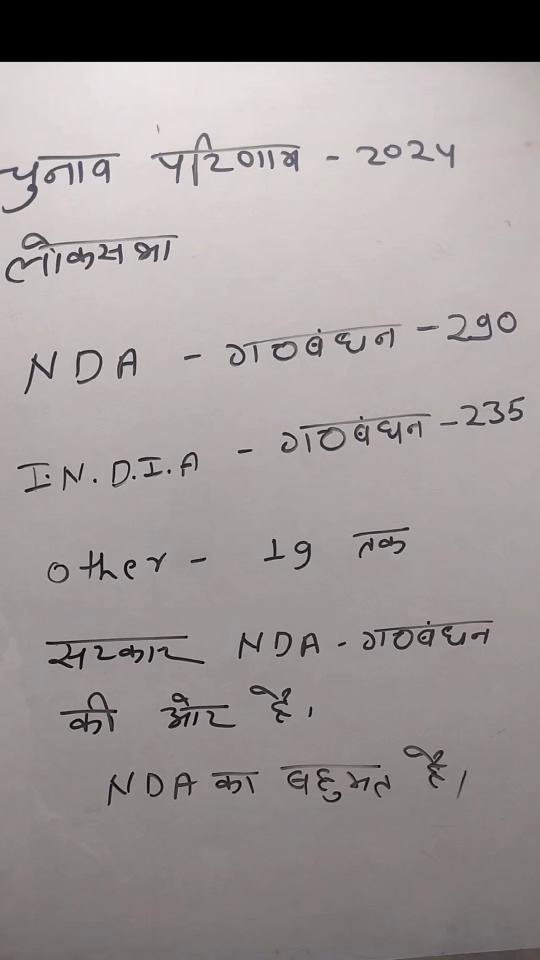 चुनाव परिणाम - 2024
लोकसभा
NDA - गठबंधन - 290
I.N.D.I.A - गठबंधन - 235
other - 19 तक
सरकार NDA - गठबंधन
की ओर है।
NDA का बहुमत है।